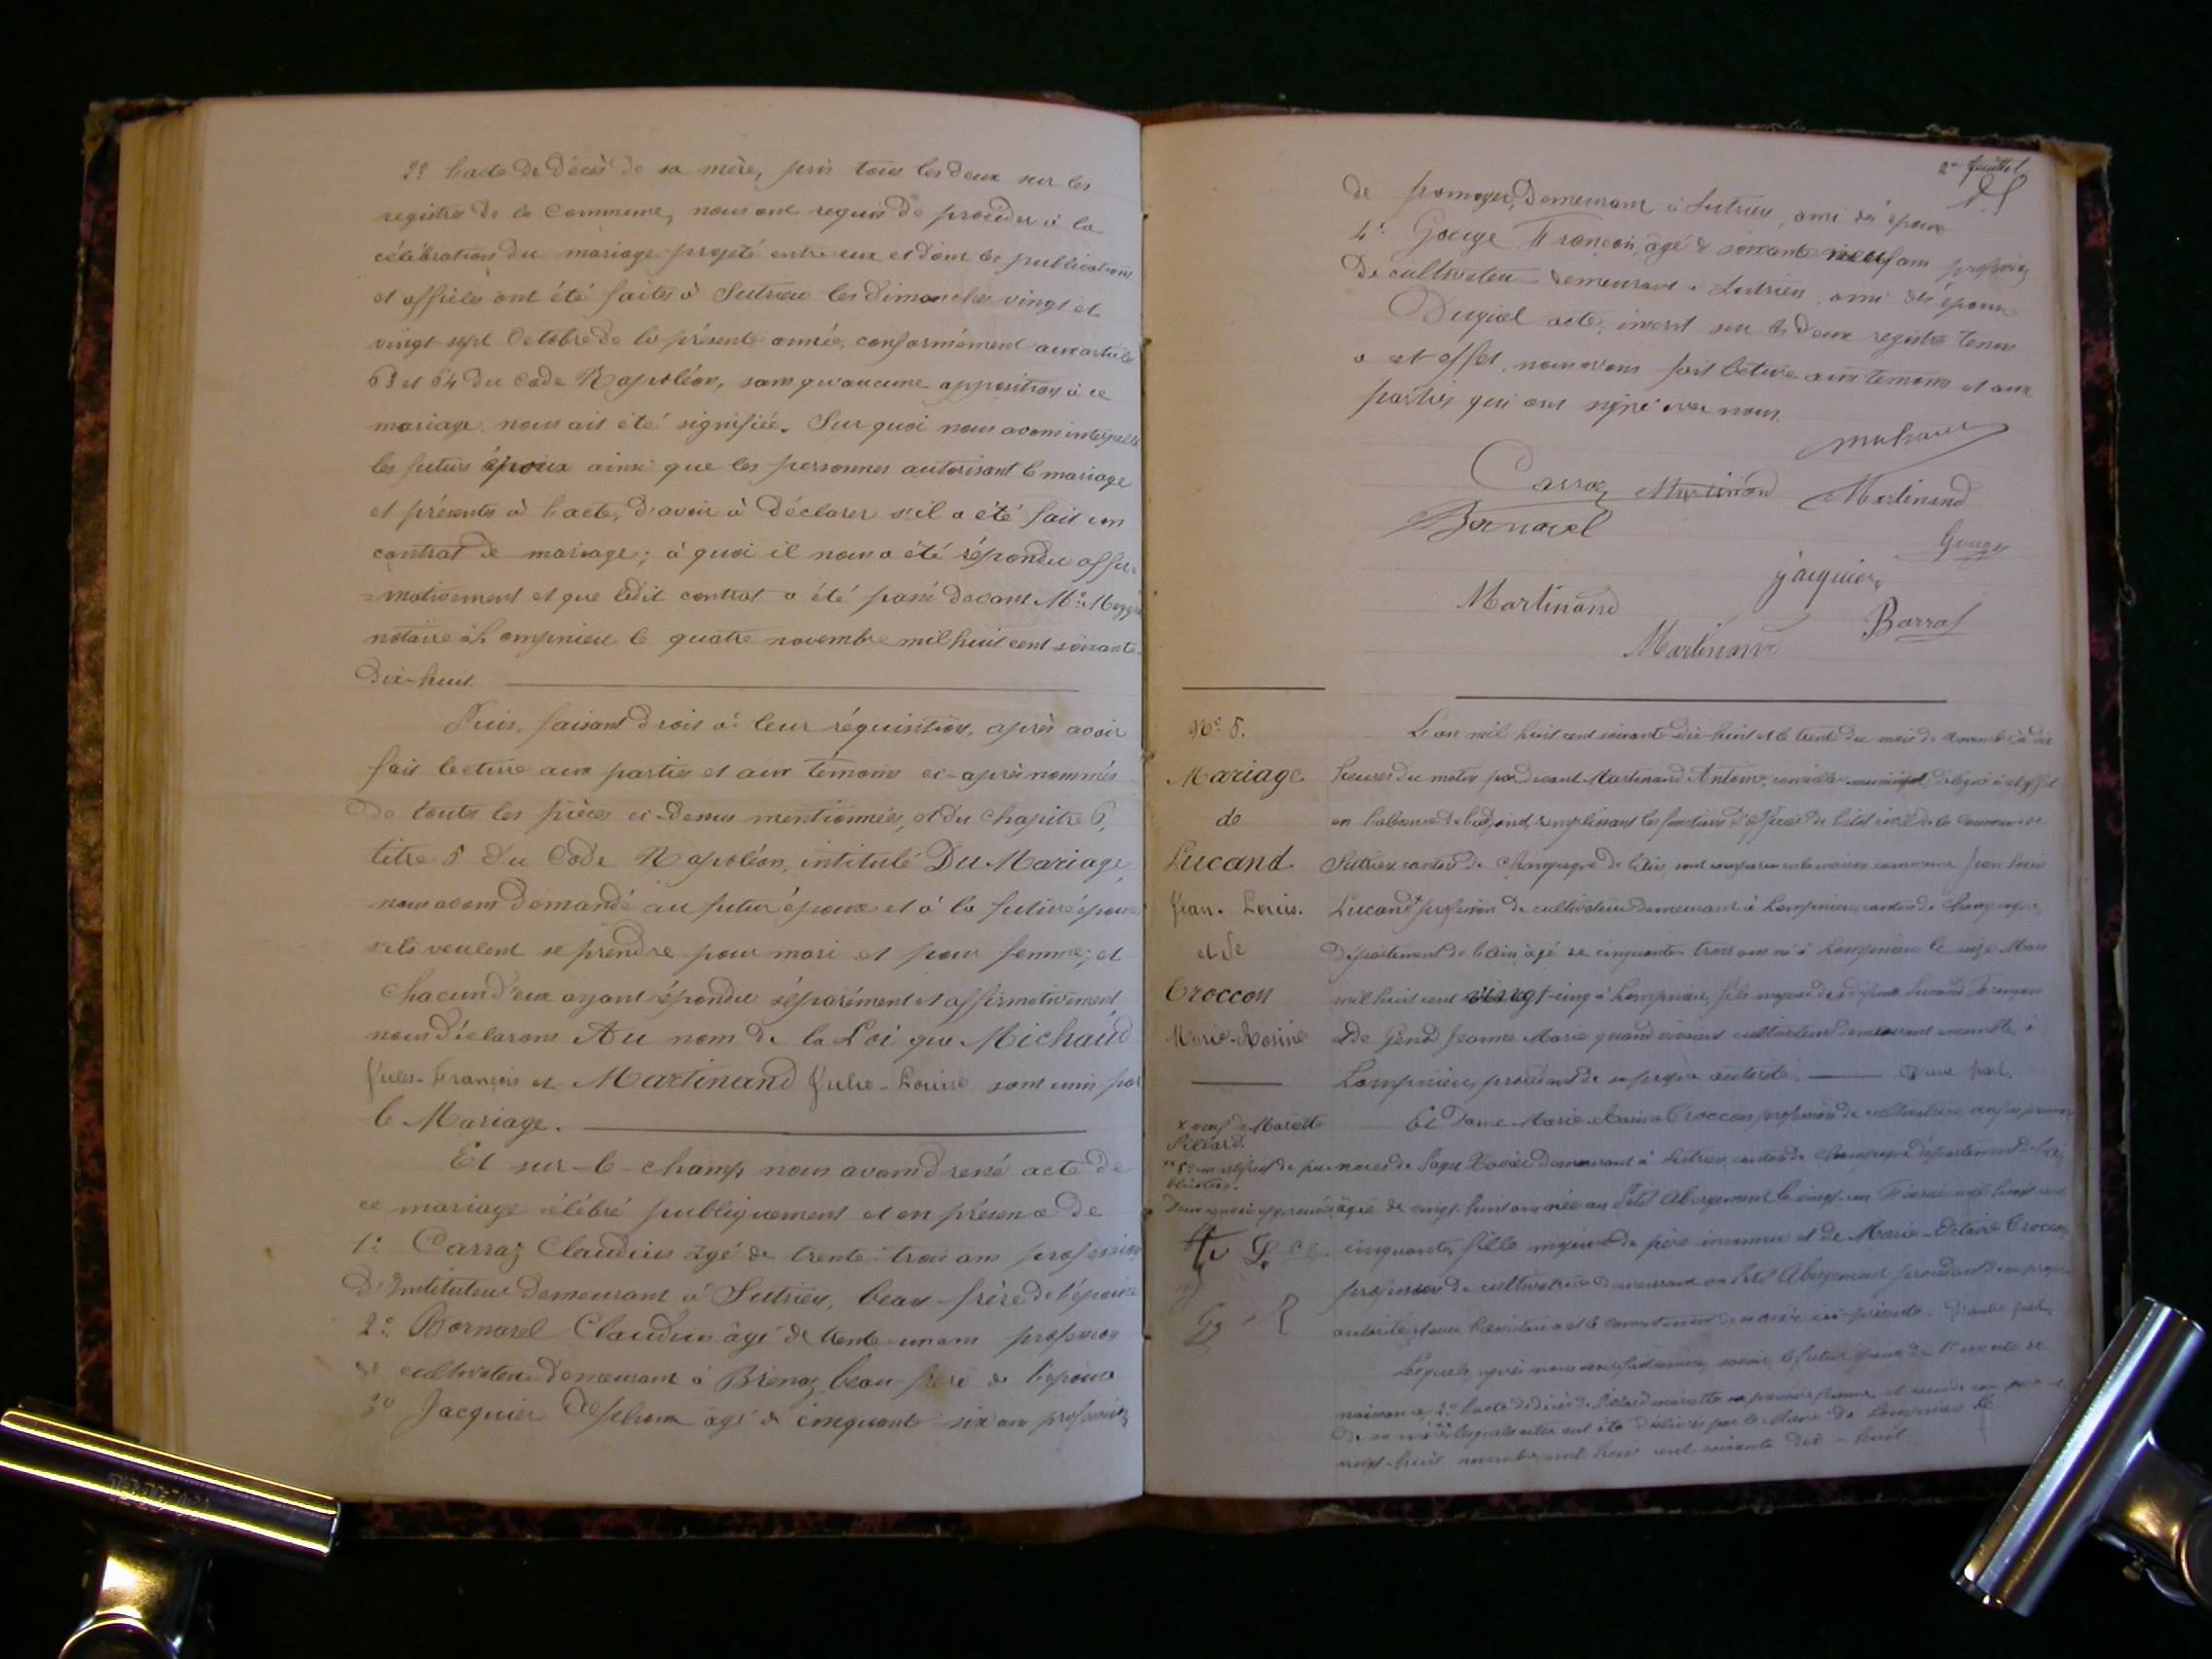 2° l'acte de décès de sa mère, pris tous les deux sur les
registres de la Commune, nous ont requis de procéder à la
célébration du mariage projeté entre eux et dont les publications
et affiches ont été faites à Sutrieu les dimanches vingt et
vingt sept Octobre de la présente année, conformément aux articles
63 et 64 du Code Napoléon, sans qu'aucune opposition à ce
mariage nous ait été signifiée. Sur quoi nous avons interpellé
les futurs époux ainsi que les personnes autorisant le mariage
et présentes à l'acte, d'avoir à déclarer s'il a été fait un
contrat de mariage; à quoi il nous a été répondu affir-
=mativement et que ledit contrat a été passé devant Me
notaire à Lompnieu le quatre novembre mil huit cent soixante-
Dix-huit.
Puis, faisant droit à leur réquisition, après avoir
fait lecture aux parties et aux témoins ci-après nommés
de toutes les pièces ci-dessus mentionnées, et du Chapitre 6,
titre 5 du Code Napoléon, intitulé Du Mariage,
nous avons demandé au futur époux et à la future épouse
s'ils veulent se prendre pour mari et pour femme; et
chacun d'eux ayant répondu séparément et affirmativement
nous déclarons Au nom de la Loi que Michaud
Jules-François et Martinand Julie-Louise sont unis par
le Mariage.
Et sur-le-champ nous avons dressé acte de
ce mariage célébré publiquement et en présence de
1° Carraz Claudius âgé de trente-trois ans profession
d'Instituteur demeurant à Sutrieu, beau-frère de l'épouse
2° Bornarel Claudius âgé de trente-un ans profession
de cultivateur demeurant à Brénaz beau-frère de l'épouse
3° Jacquier Delphin âgé de cinquante-six ans profession
2e feuillet
de demeurant à Sutrieu, ami des époux
4° Gouge François, âgé de soixante neuf ans profession
de cultivateur demeurant à Sutrieu, ami des époux
Duquel acte, inscrit sur les deux registres tenus
à cet effet, nous avons fait lecture aux témoins et aux
parties qui ont signé avec nous.
Michaud
Carraz Martinand Martinand
Bornarel
Gouge
Jacquier
Martinand
Barral
Martinand
No 5.
Mariage
de
Lucand
Jean-Louis.
et de
Croccon
Marie-Rosine
L'an mil huit cent soixante-dix-huit et le trente du mois de novembre à dix
heures du matin par devant Martinand Antoine, conseiller municipal délégué à cet effet
en l'absence de l'adjoint, remplissant les fonctions d'officier de l'état civil de la commune de
Sutrieu canton de Champagne de l'Ain, sont comparus en la maison commune Jean Louis
Lucand x profession de cultivateur demeurant à Lompnieu, canton de Champagne,
département de l'Ain, âgé de cinquante-trois ans né à Lompnieu le seize Mars
mil huit cent vingt-cinq à Lompnieu, fils majeur des défunts Lucand François
et de Jeanne Marie quand vivaient cultivateurs demeurant ensemble à
Lompnieu, procédant de sa propre autorité. D'une part.
x veuf de Mariette
Pillard.
xx 3° certificat de pu-
blication.
Et Dame Marie-Rosine Croccon profession de cultivatrice
demeurant à Sutrieu, canton de Champagne département de l'Ain
âgée de vingt-huit ans née au Petit Abergement le vingt-un Février mil huit cent
cinquante, fille majeure de père inconnu et de Marie-Victoire Croccon
profession de cultivatrice demeurant au Petit Abergement procédant de sa propre
autorité et avec l'assistance et le consentement de sa mère ici présente. D'autre part.
Lesquels, après nous avoir savoir le futur époux de 1° l'acte de
naissance, 2° l'acte de décès de Pillard Mariette sa première femme, et
de sa mère xx lesquels actes ont été délivrés par le Maire de Lompnieu le
vingt-huit novembre mil huit cent soixante dix-huit.